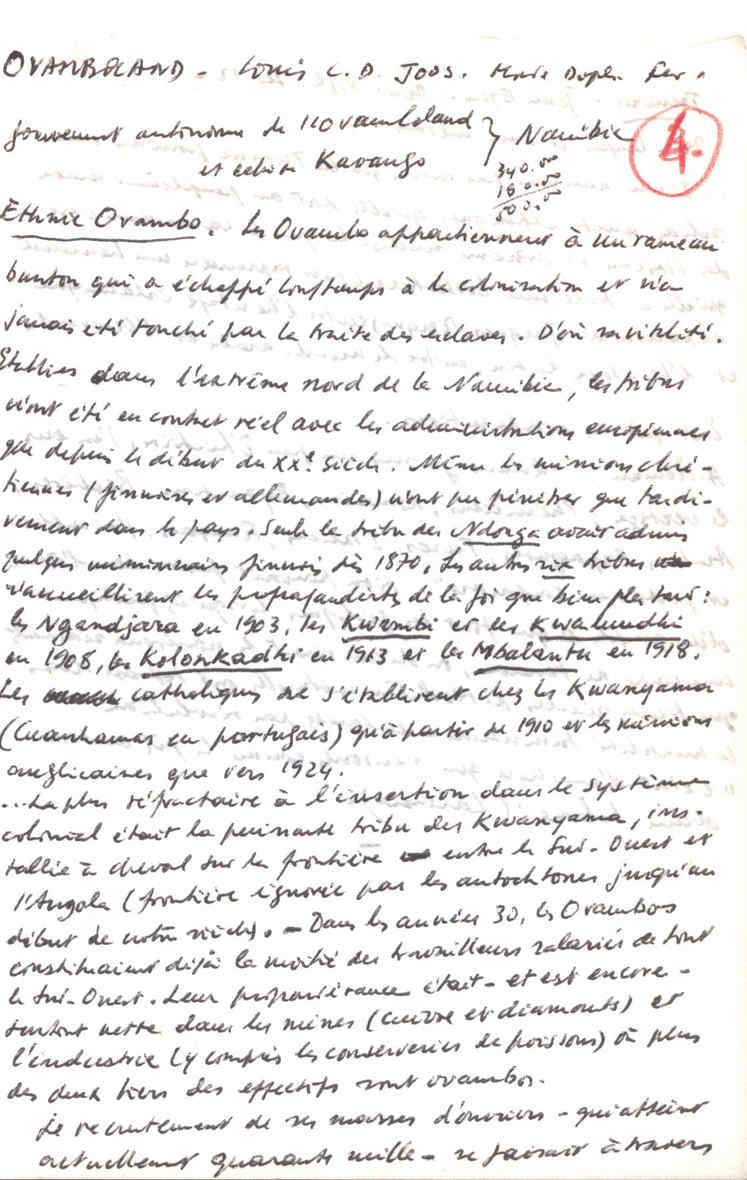 OVAMBOLAND - Louis C. D. JOOS.
gouvernement autonome de l'Ovamboland
et celui Kavango } Namibie
340.00
160.00
500.00
4.
Ethnie Ovambo. Les Ovambo appartiennent à un rameau
bantou qui a échappé longtemps à la colonisation et n'a
jamais été touché par la traite des esclaves. D'où sa vitalité.
Etablies dans l'extrême nord de la Namibie, les tribus
n'ont été en contact réel avec les administrations européennes
que depuis le début du XXe siècle. Même les missions chré-
tiennes (finnoises et allemandes) n'ont pu pénétrer que tardi-
vement dans le pays. Seule la tribu des Ndonga avait admis
quelques missionnaires finnois dès 1870, les autres six tribus
n'accueillirent les propagandistes de la foi que bien plus tard :
les Ngandjara en 1903, les Kwambi et les Kwaluudhi
en 1908, les Kolonkadhi en 1913 et les Mbalantu en 1918.
Les catholiques ne s'établirent chez les Kwanyama
(Cuanhamas en portugais) qu'à partir de 1910 et les missions
anglicaines que vers 1924.
...La plus réfractaire à l'insertion dans le système
colonial était la puissante tribu des Kwanyama, ins-
tallée à cheval sur la frontière entre le Sud-Ouest et
l'Angola (frontière ignorée par les autochtones jusqu'au
début de notre siècle). - Dans les années 30, les Ovambos
constituaient déjà la moitié des travailleurs salariés de tout
le Sud-Ouest. Leur prépondérance était - et est encore -
surtout nette dans les mines (cuivre et diamants) et
l'industrie (y compris les conserveries de poissons) où plus
des deux tiers des effectifs sont ovambos.
Le recrutement de ses masses d'ouvriers - qui atteint
actuellement quarante mille - se faisait à travers